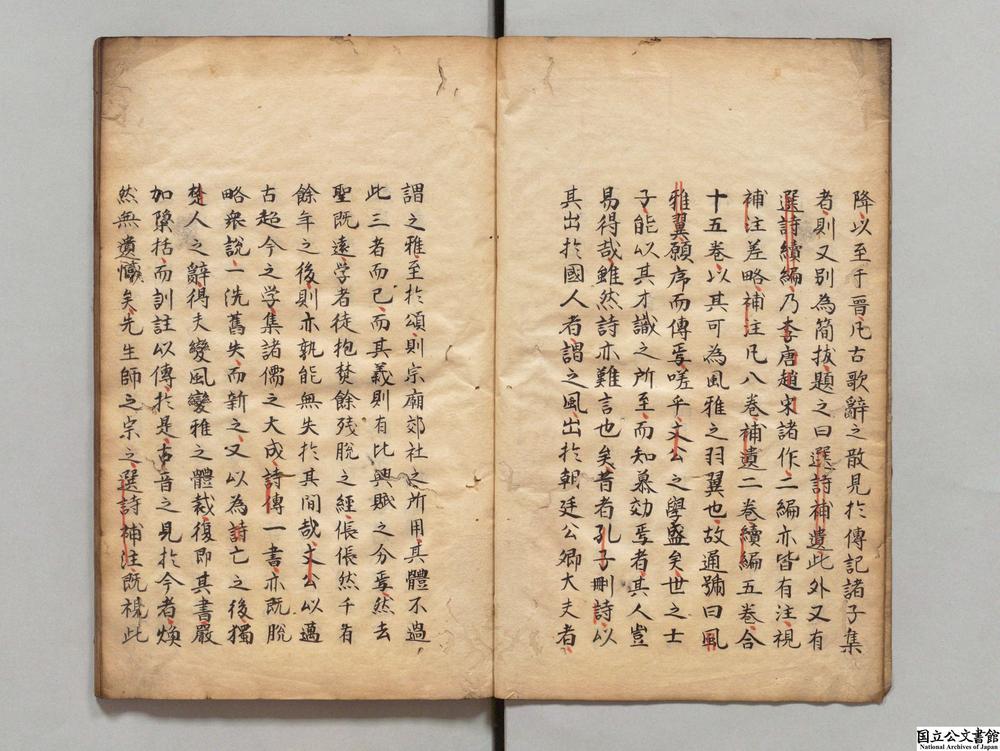 降以至于晋凡古歌辭之散見於傳記諸子集
者則又別為簡拔題之曰選詩補遺此外又有
選詩續編乃李唐趙宋諸作二編亦皆有注視
補注差略補注凡八卷補遺二卷續編五卷合
十五卷以其可為風雅之羽翼也故通號曰風
雅翼願序而傳焉嗟乎文公之學盛矣世之士
子能以其才識之所至而知慕効焉者其人豈
易得哉雖然詩亦難言也矣昔者孔子刪詩以
其出於國人者謂之風出於朝廷公卿大夫者
謂之雅至於頌則宗廟郊社之所用其體不過
此三者而已而其義則有比興賦之分焉然去
聖既遠学者徒抱焚餘残脫之經倀倀然千有
餘年之後則亦孰能無失於其間哉文公以邁
古超今之学集諸儒之大成詩傳一書亦既脫
略衆說一洗舊失而新之又以為詩亡之後獨
楚人之辭得夫變風變雅之體裁復即其書嚴
加檃括而訓註以傳於是古音之見於今者煥
然無遺憾矣先生師之宗之選詩補注既視此
国立公文書館
National Archives of Japan